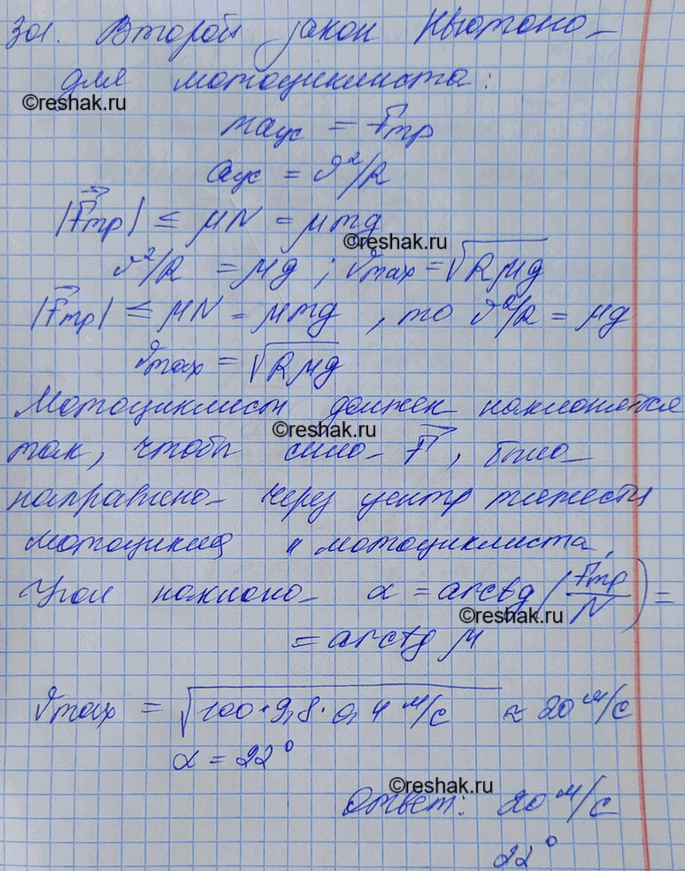 301. Второй закон Ньютона
для мотоциклиста:
©reshak.ru
maцс = Fтр
aцс = υ²/R
|Fтр| ≤ μN = μmg
©reshak.ru
υ²/R = μg ; υmax = √Rμg
|Fтр| ≤ μN = μmg , то υ²/R = μg
υmax = √Rμg
Мотоциклист должен наклоняться
©reshak.ru
так, чтобы сила F, была
направлена через центр тяжести
мотоцикла и мотоциклиста,
Угол наклона α = arctg (Fтр/N) =
©reshak.ru
= arctg μ
υmax = √100·9,8·0,4 м/с ≈ 20 м/с
α = 22°
©reshak.ru
Ответ: 20 м/с
22°